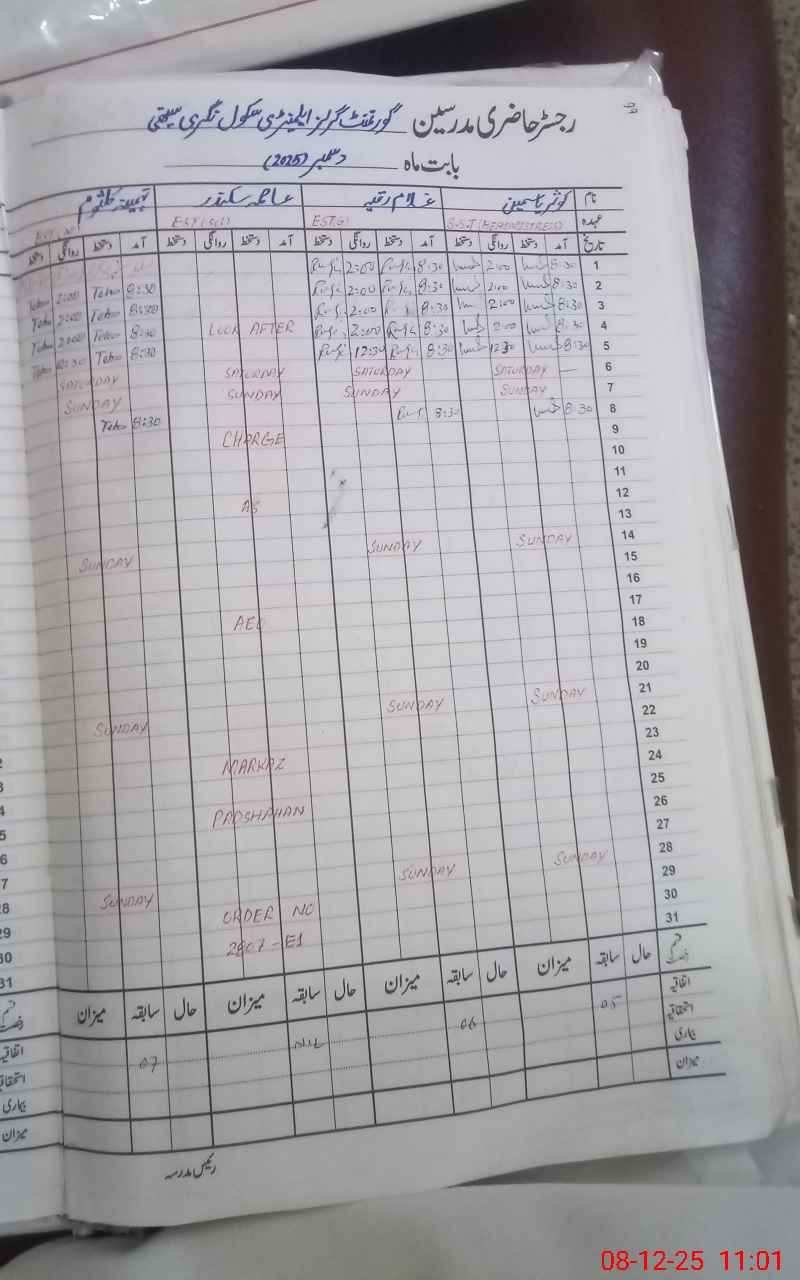 رجسٹر حاضری مدرسین گورنمنٹ گرلز ایلیمنٹری سکول نگری سیتھی
بابت ماہ دسمبر (2025)
نام کوثر یاسمین غلام رقیہ عاصمہ سکندر تہمینہ کلثوم
عہدہ S.S.T (HEADMISTRESS) EST(G) EST(SCI)
تاریخ آمد دستخط روانگی دستخط آمد دستخط روانگی دستخط آمد دستخط روانگی دستخط آمد دستخط روانگی دستخط
1 8:30 2:00 8:30 2:00
2 8:30 2:00 8:30 2:00 8:30 2:00
3 8:30 2:00 8:30 2:00 8:30 2:00
4 8:30 2:00 8:30 2:00 LOOK AFTER 8:30 2:00
5 8:30 12:30 8:30 12:30 8:30 12:30
6 SATURDAY SATURDAY SATURDAY SATURDAY
7 SUNDAY SUNDAY SUNDAY SUNDAY
8 8:30 8:30 8:30
9 CHARGE
10
11
12 AS
13
14 SUNDAY SUNDAY SUNDAY
15
16
17
18 AEO
19
20
21 SUNDAY SUNDAY SUNDAY
22
23
24 MARKAZ
25
26 PADSHAHAN
27
28 SUNDAY SUNDAY SUNDAY
29
30 ORDER NO
31 2807-E1
قسم رخصت حال سابقہ میزان حال سابقہ میزان حال سابقہ میزان حال سابقہ میزان
اتفاقیہ 05 06 NIL 07
استحقاقیہ
بیماری
میزان
رئیس مدرسہ
08-12-25 11:01